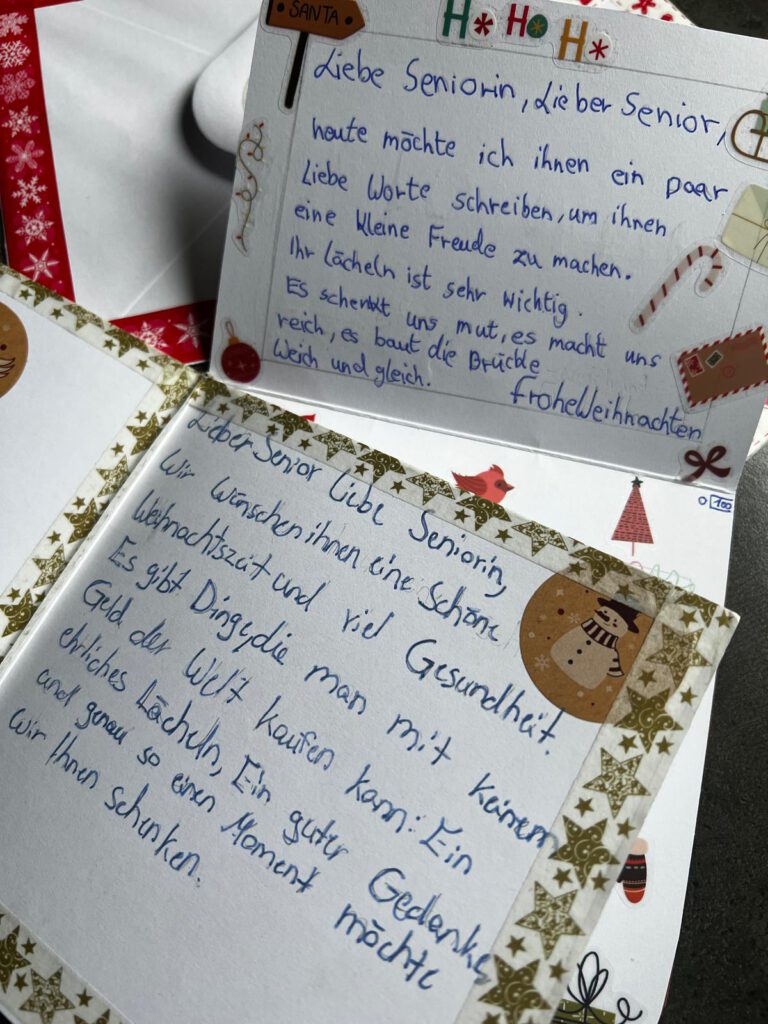 SANTA
HO HO HO
Liebe Seniorin, Lieber Senior,
heute möchte ich ihnen ein paar
Liebe Worte schreiben, um ihnen
eine kleine Freude zu machen.
Ihr Lächeln ist sehr wichtig.
Es schenkt uns mut, es macht uns
reich, es baut die Brücke
Weich und gleich.
FroheWeihnachten
100
Lieber Senior Liebe Seniorin,
Wir wünschen ihnen eine Schöne
Weihnachtszeit und viel Gesundheit.
Es gibt Dinge, die man mit keinem
Geld der Welt kaufen kann: Ein
ehrliches Lächeln, Ein guter Gedanke,
und genau so einen Moment möchte
wir Ihnen schenken.